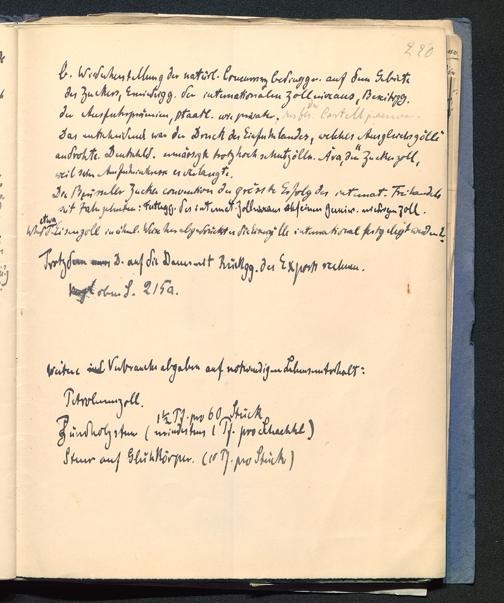 220
b. Wiederherstellung der natürl. Concurrenzbedinggn. auf dem Gebiete
des Zuckers, Erniedrigg. des internationalen Zollniveaus, Beseitigg.
der Ausfuhrprämien, staatl. wie privater,
Das entscheidend war der Druck des Einfuhrlandes, welches Ausgleichszölle
androhte. Deutschld. ermässigte trotz hochschutzzölln. Ära, den Zuckerzoll,
weil sein Ausfuhrinteresse es verlangte.
Die Brüsseler Zuckerconvention der grösste Erfolg des internat. Freihandels
seit Jahrzehnten: Festlegg. des internat. Zollniveaus auf einen niedrigen Zoll.
etwa
Eisenzoll in ähnl. international festgelegt werden?
Trotzdem muss D. auf die Dauer mit Rückgg. des Exports rechnen.
oben S. 215a.
weitere Verbrauchsabgaben auf notwendigen Lebensunterhalt:
Petroleumzoll.
1½ Pf. pro 60 Stück
Zündholzsteuer (mindestens 1 Pf. pro Schachtel)
Steuer auf Glühkörper. (10 Pf. pro Stück)